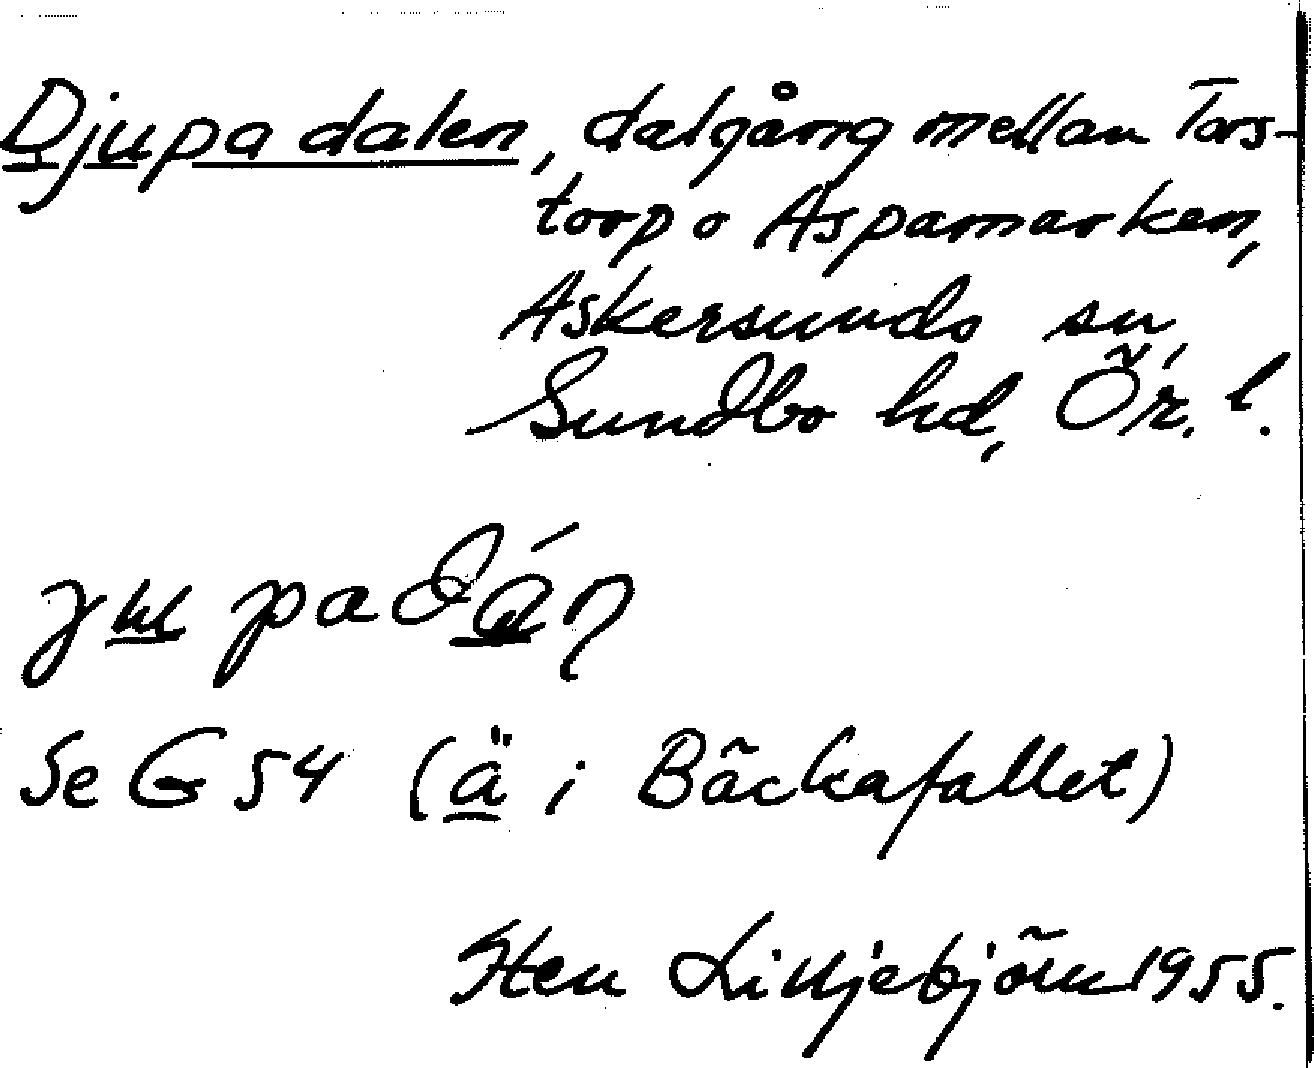 Djupa dalen, dalgång mellan Tors-
torp o Aspamarken,
Askersunds sn,
Sundbo hd, Ör. l.
Se G 54 (ä i Bäckafallet)
Sten Lilljebjörn 1955.